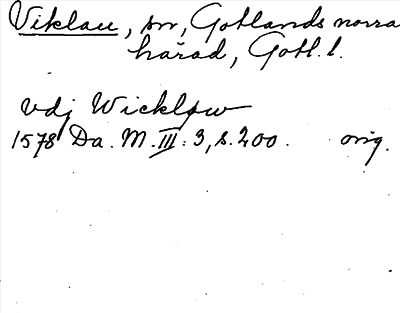 Viklau, sn, Gotlands norra
härad, Gotl. l.
vdj Wicklow
1578 Da. M. III: 3, s. 200. orig.